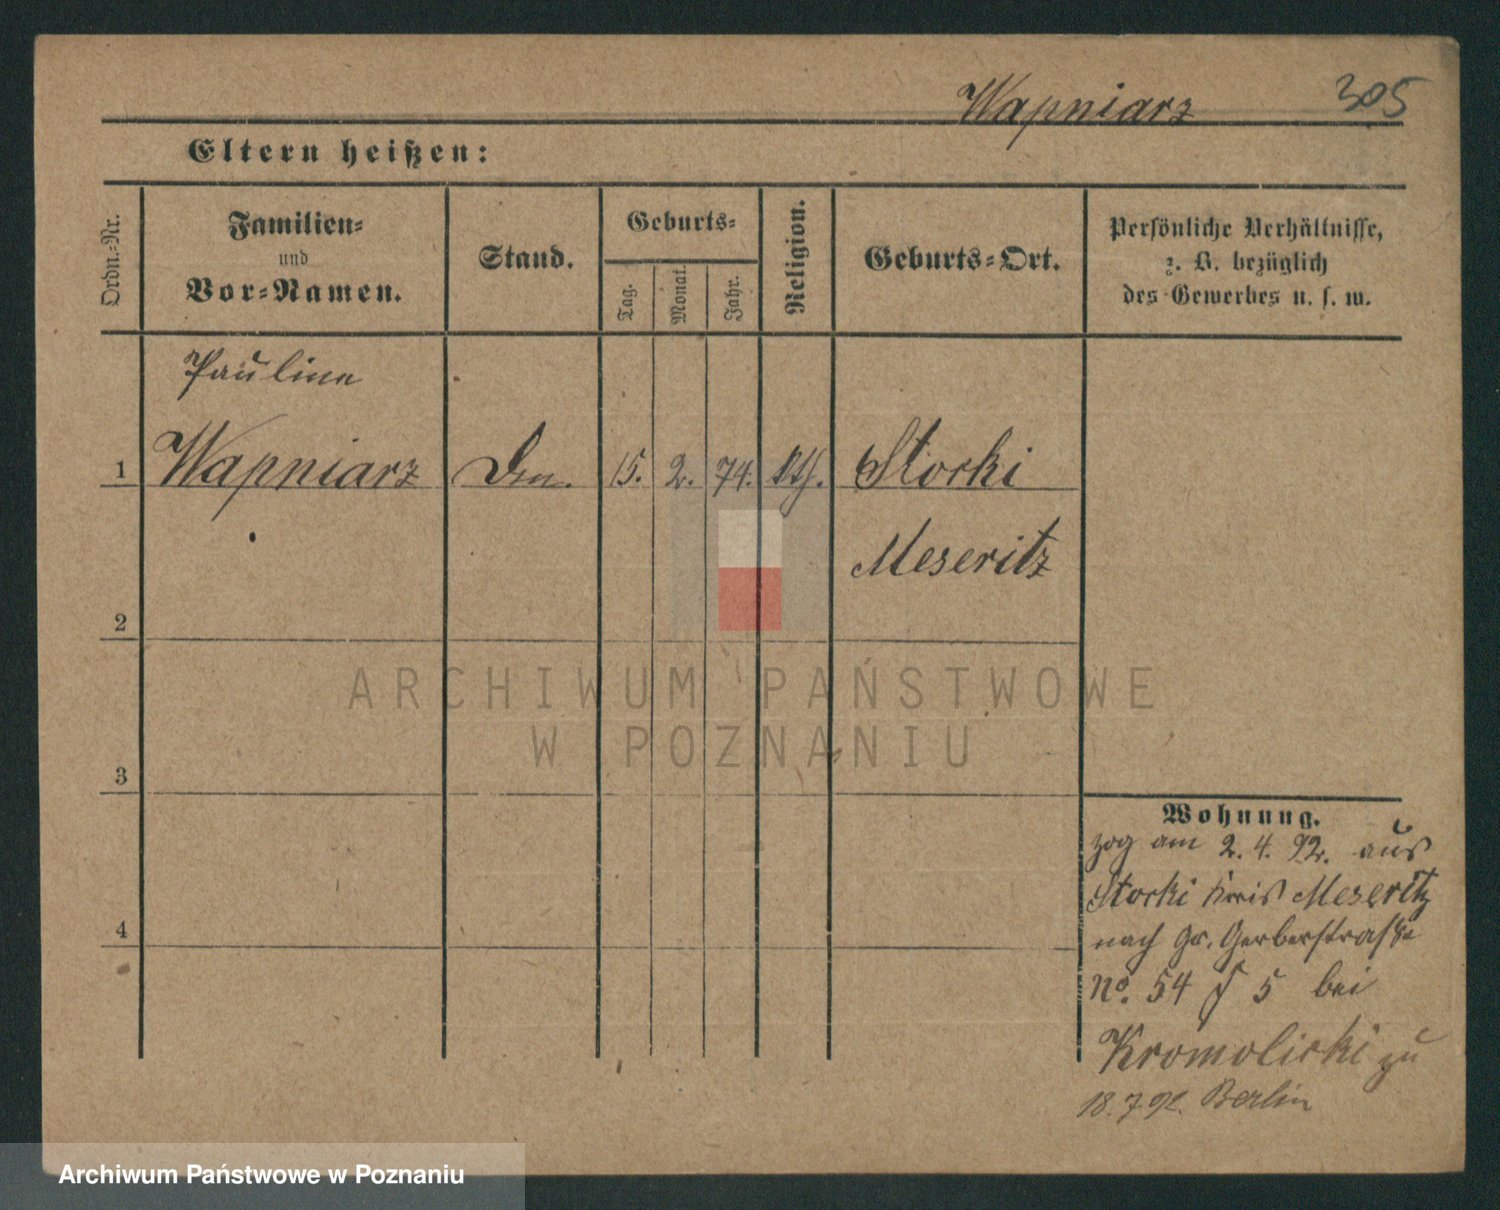 Wapniarz 305
Eltern heißen:
Ordn.=Nr.
Familien=
und
Vor=Namen.
Stand.
Geburts=
Tag.
Monat.
Jahr.
Religion.
Geburts=Ort.
Persönliche Verhältnisse,
z. B. bezüglich
des Gewerbes u. s. w.
Pauline
1 Wapniarz 15. 2. 74. Kth. Storki
Meseritz
2
3
4
Wohnung.
zog am 2. 4. 92. aus
Storki Kreis Meseritz
nach Gr. Gerberstraße
No. 54 5 bei
Kromolicki zu
18. 7. 92. Berlin
ARCHIWUM PAŃSTWOWE
W POZNANIU
Archiwum Państwowe w Poznaniu